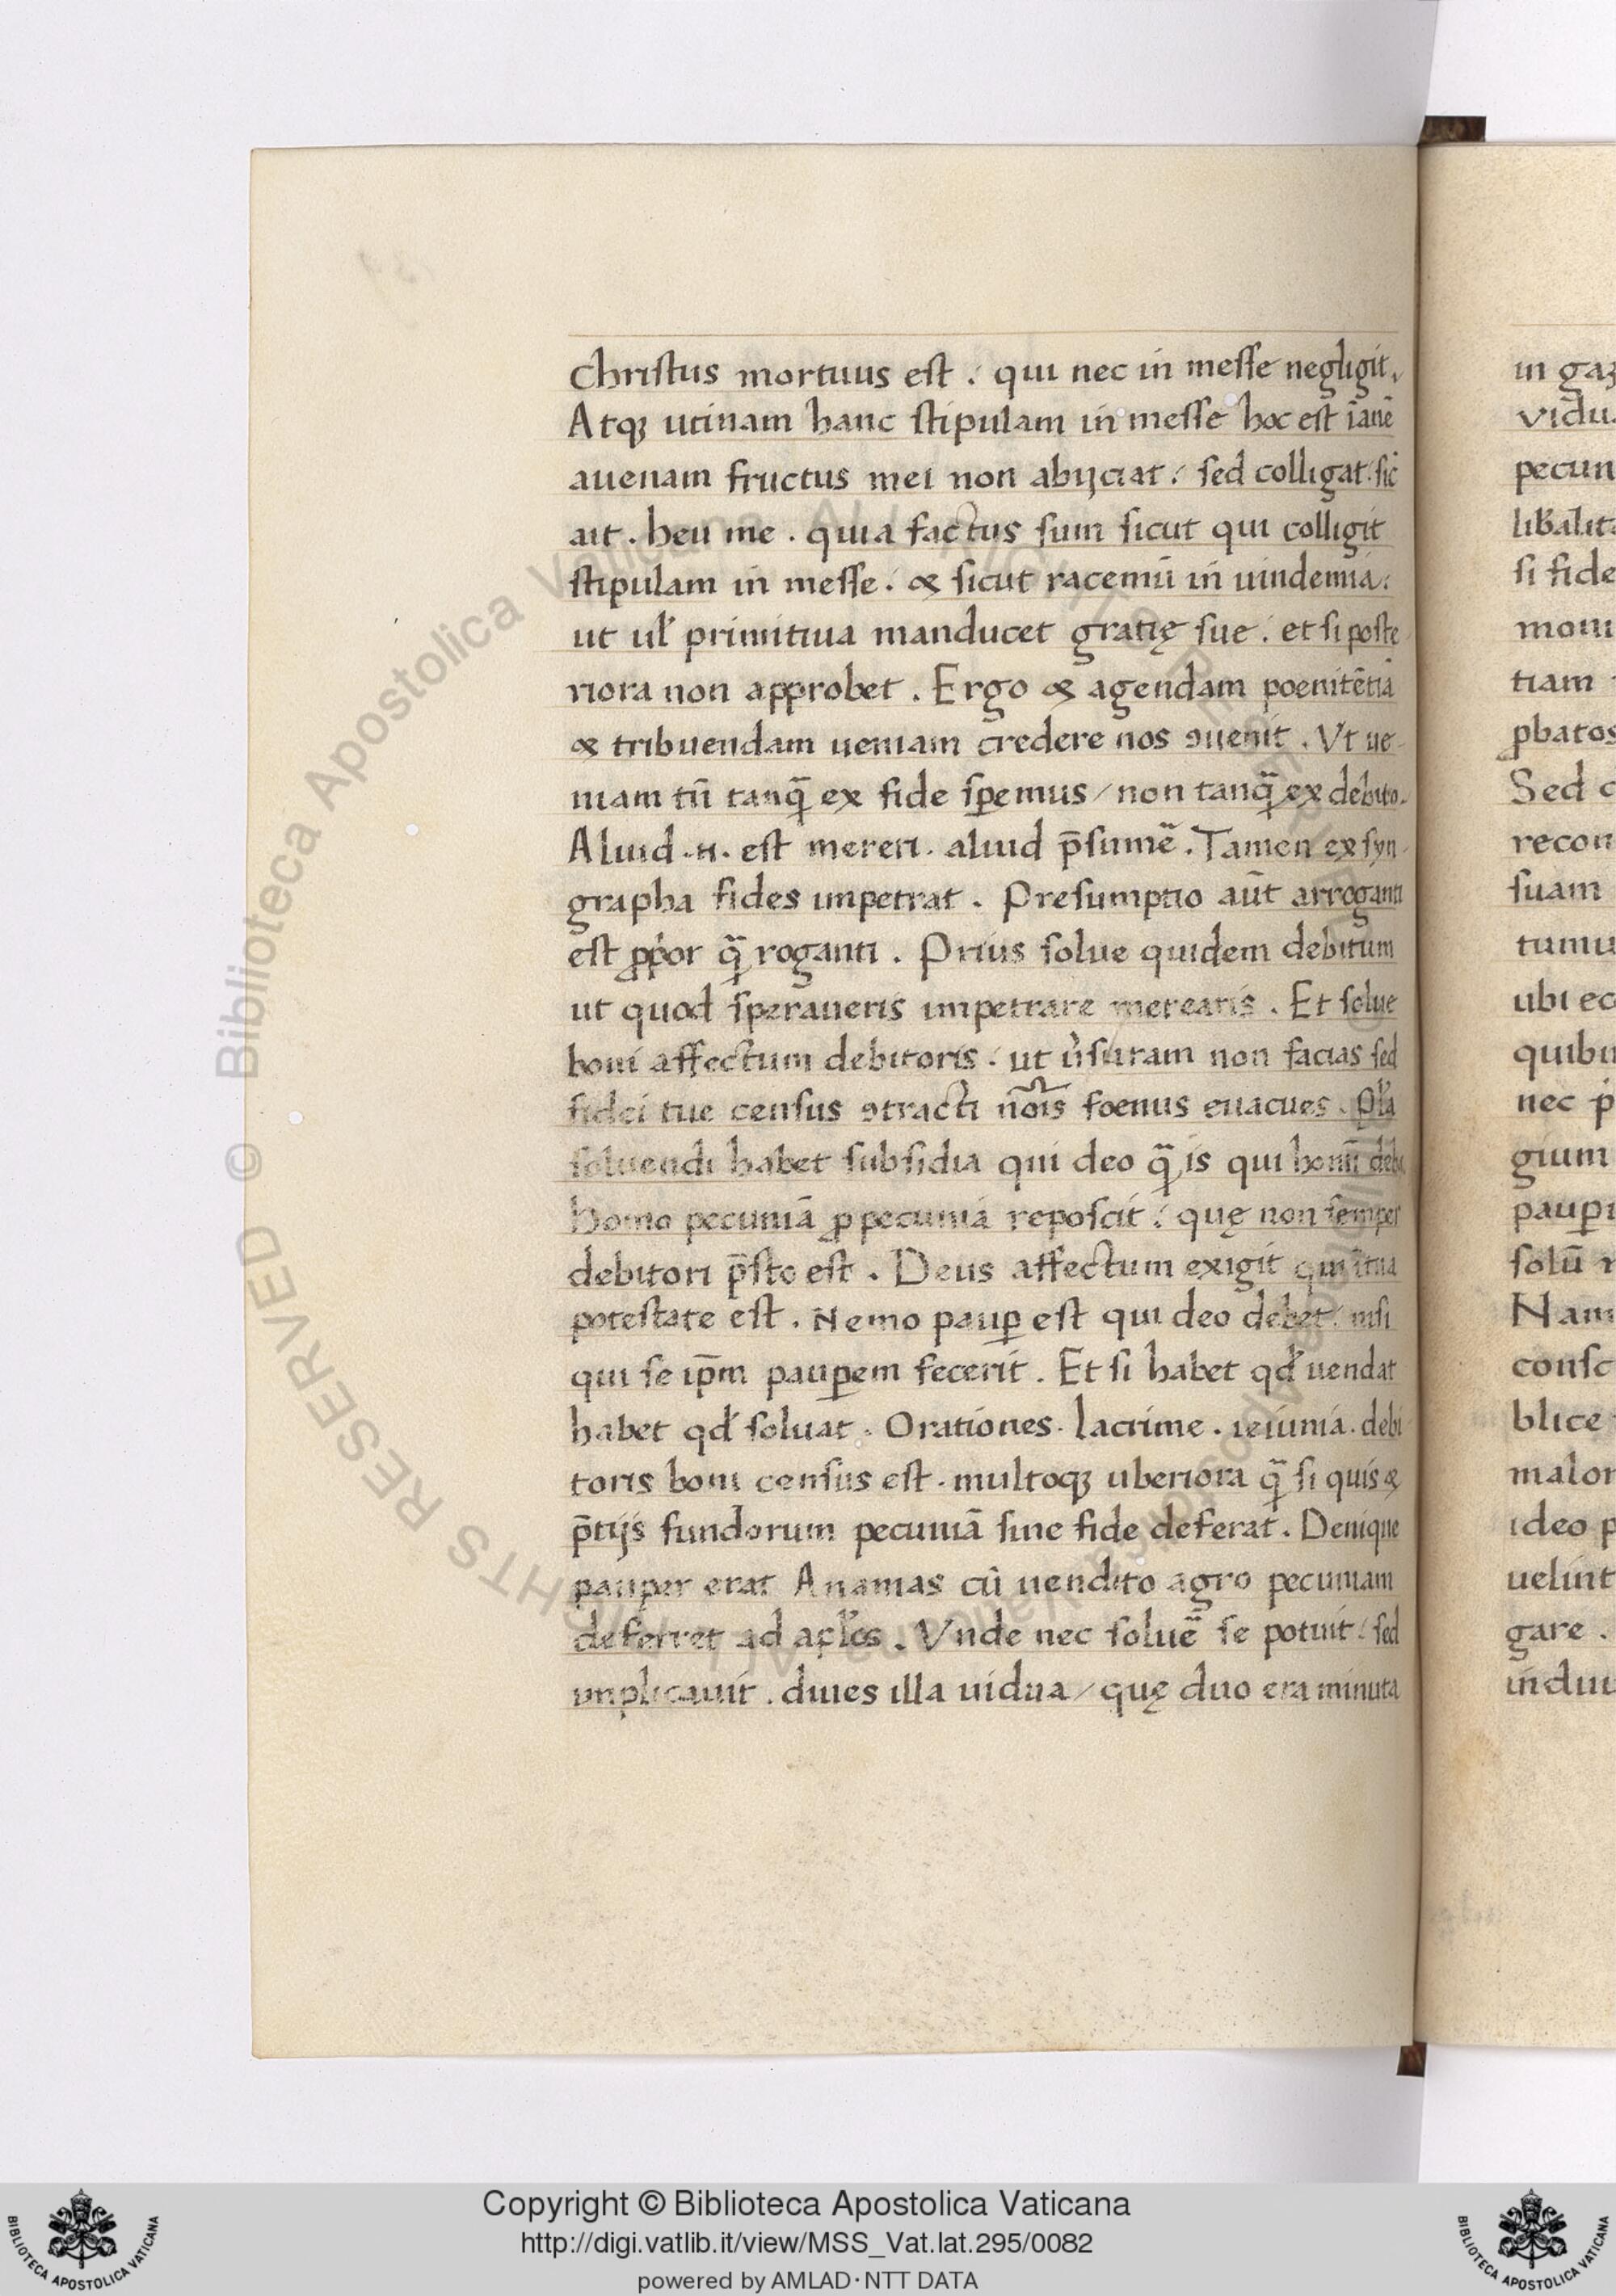 Christus mortuus est . qui nec in messe negligit.
Atqꝫ utinam hanc stipulam in messe hoc est īanē
auenam fructus mei non abijciat. sed colligat. sic
ait . heu me . quia factus sum sicut qui colligit
stipulam in messe . & sicut racemū in uindemia.
ut ul̓ primitiua manducet gratię sue . et si poste
riora non approbet . Ergo & agendam poenitētiā
& tribuendam ueniam credere nos ꝯuenit . Vt ue-
niam tn̄ tanq̄ ex fide speremus / non tanq̄ ex debito.
Aliud .n. est mereri . aliud p̄sumē . Tamen ex syn-
grapha fides impetrat . Presumptio aūt arroganti
est ꝓpior q̄ roganti . Prius solue quidem debitum
ut quod speraueris impetrare merearis . Et solue
boni affectum debitoris . ut ūsuram non facias sed
fidei tue census ꝯtracti nōis foenus euacues . Pl̓a
soluendi habet subsidia qui deo q̄ is qui homī debet
Homo pecuniā ꝓ pecunia reposcit . quę non semper
debitori p̄sto est . Deus affectum exigit qui ī tua
potestate est . Nemo paup̱ est qui deo debet . nisi
qui se ip̄m paup̱em fecerit . Et si habet qd̓ uendat
habet qd̓ soluat . Orationes . lacrime . ieiunia . debi
toris boni census est . multoqꝫ uberiora q̄ si quis &
p̄tijs fundorum pecuniā sine fide deferat . Denique
pauper erat Ananias cū uendito agro pecuniam
deferret ad apl̓os . Vnde nec soluē se potuit . sed
implicauit . diues illa uidua / quę duo era minuta
in gaz
vidu
pecun
lib̓alit
si fide
moni
tiam
ꝓbatos
Sed
recon
suam
tumu
ubi ec
quibu
nec
gium
paup̱
solū
Nam
consc
blice
malor
ideo p
uelint
gare .
indui
© Biblioteca Apostolica Vaticana ALL RIGHTS RESERVED
Copyright © Biblioteca Apostolica Vaticana
http://digi.vatlib.it/view/MSS_Vat.lat.295/0082
powered by AMLAD·NTT DATA
BIBLIOTECA APOSTOLICA VATICANA
BIBLIOTECA APOSTOLICA VATICANA